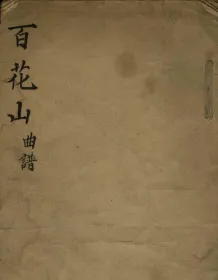 百花山曲譜